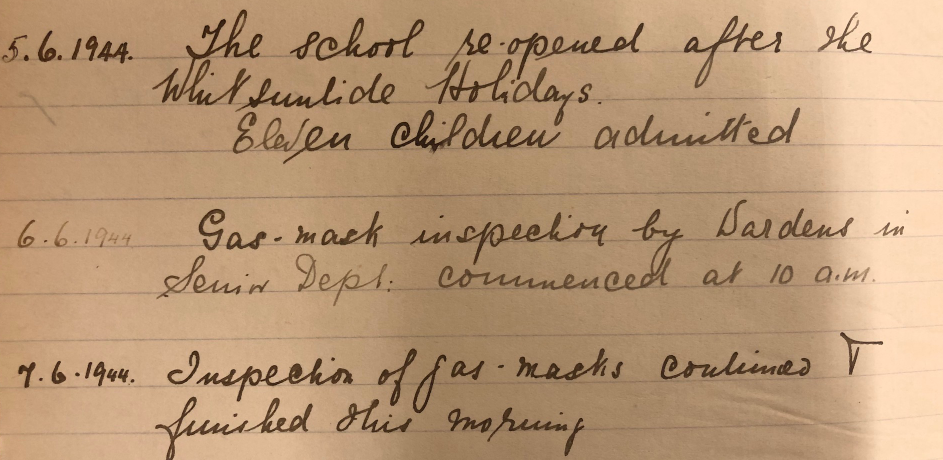 5.6.1944. The school re-opened after the
Whitsuntide Holidays.
Eleven children admitted
6.6.1944 Gas-mask inspection by Wardens in
Senior Dept: commenced at 10 a.m.
7.6.1944. Inspection of gas-masks continued
finished this morning